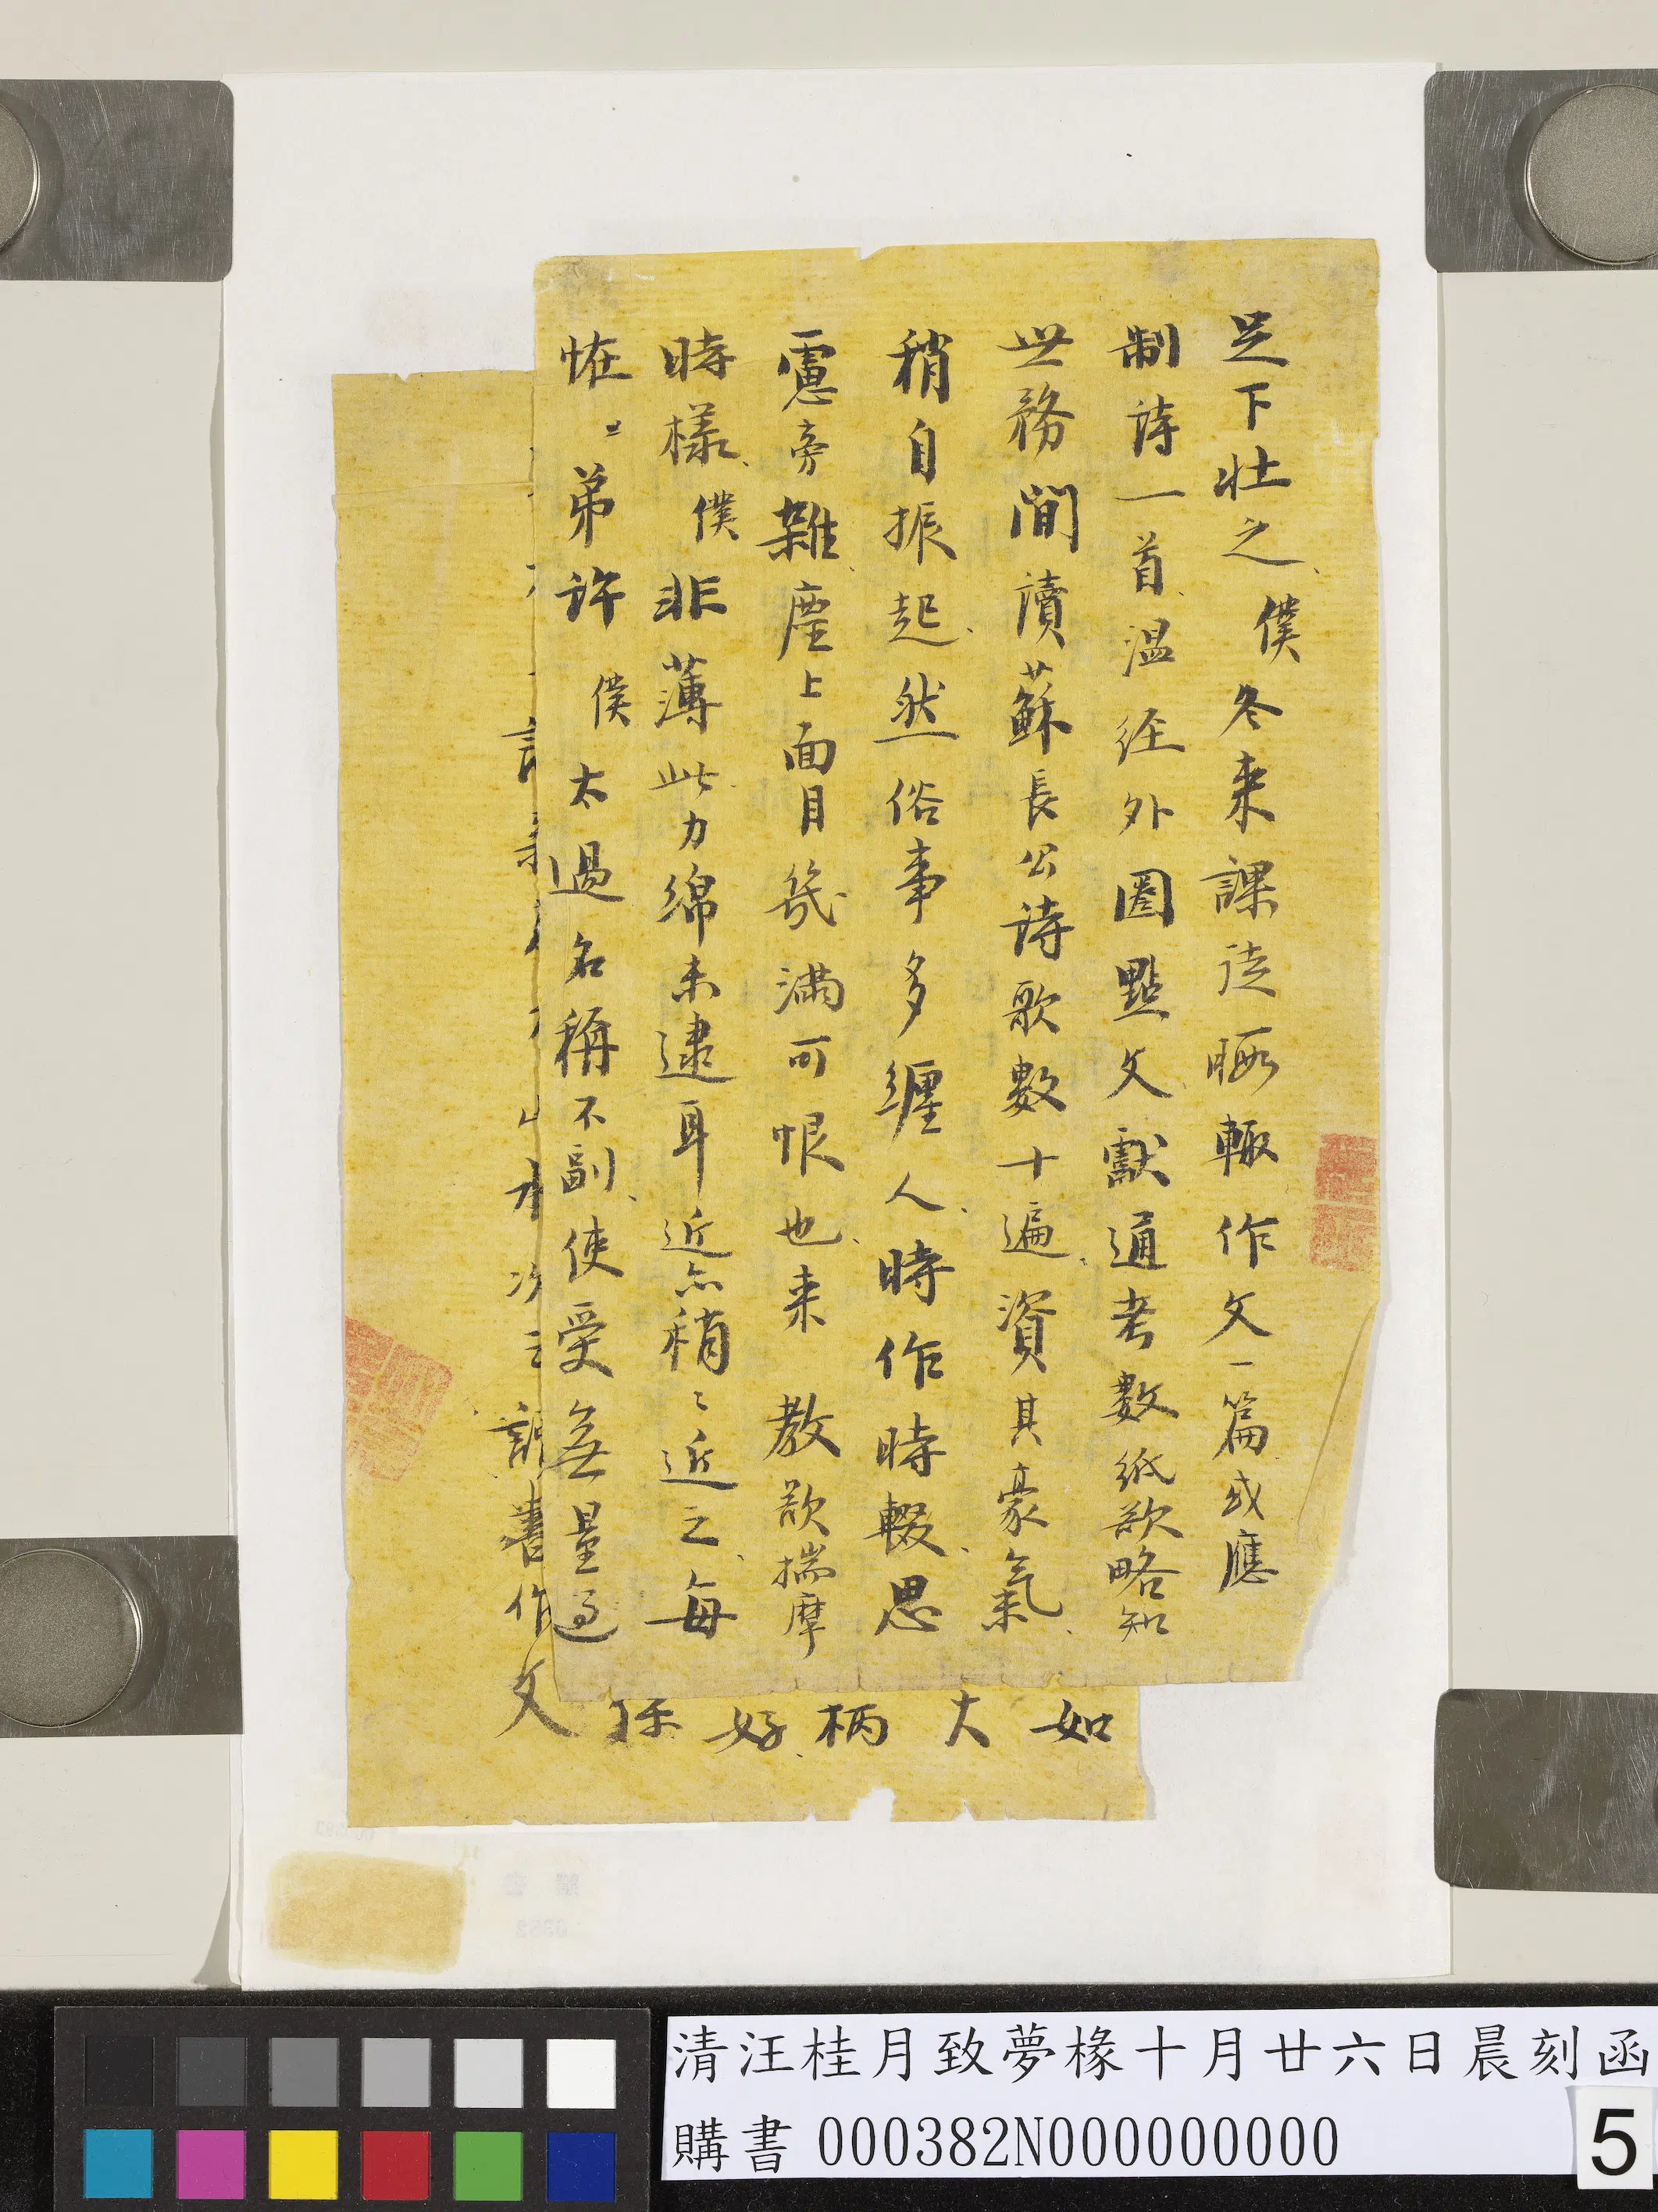 足下壯之僕冬来課徒暇輙作文一篇或應
制詩一首温経外圈點文獻通考數紙欲略知
世務間讀蘇長公詩歌數十遍資其豪氣
稍自振起然俗事多纏人時作時輟思
慮旁雜塵上面目幾滿可恨也来教欲揣摩
時樣僕非薄此力綿未逮耳近亦稍〻近之每
恠〻弟許僕太過名稱不副使受無量過
如大柄好
書作文
清汪桂月致夢椽十月廿六日晨刻函
購書 000382N000000000
5